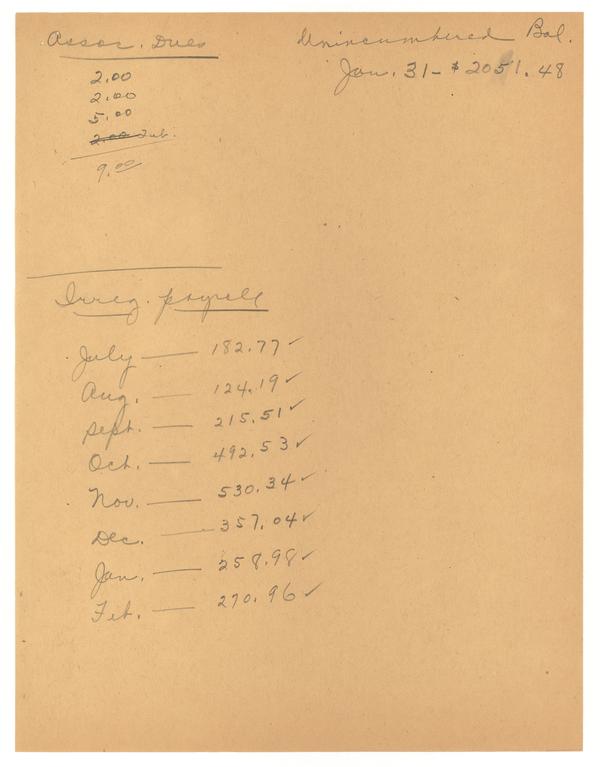 Assoc. Dues
2.00
2.00
5.00
2.00 Feb.
9.00
Unincumbered Bal.
Jan. 31 - $2051.48
Irreg. payroll
July — 182.77 ✓
Aug. — 124.19 ✓
Sept. — 215.51 ✓
Oct. — 492.53 ✓
Nov. — 530.34 ✓
Dec. — 357.04 ✓
Jan. — 258.98 ✓
Feb. — 270.96 ✓